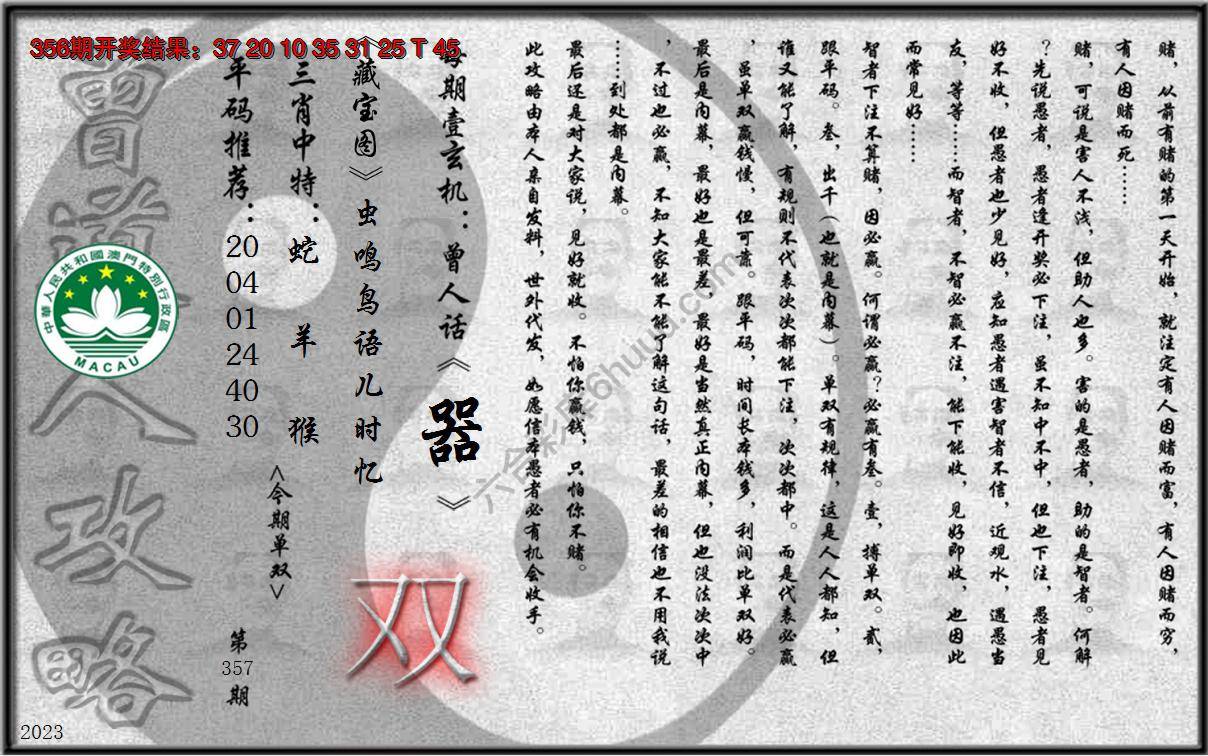 356期开奖结果：37 20 10 35 31 25 T 45
赌，从前有赌的第一天开始，就注定有人因赌而富，有人因赌而穷，
有人因赌而死……
赌，可说是害人不浅，但助人也多。害的是愚者，助的是智者。何解
？先说愚者，愚者逢开奖必下注，虽不知中不中，但也下注，愚者见
好不收，但愚者也少见好，应知愚者遇害智者不信，近观水，遇愚当
友，等等……而智者，不智必赢不注，能下能收，见好即收，也因此
而常见好……
智者下注不算赌，因必赢。何谓必赢？必赢有叁。壹，搏单双。贰，
跟平码。叁，出千（也就是内幕）。单双有规律，这是人人都知，但
谁又能了解，有规则不代表次次都能下注，次次都中。而是代表必赢
，虽单双赢钱慢，但可靠。跟平码，时间长本钱多，利润比单双好。
最后是内幕，最好也是最差，最好是当然真正内幕，但也没法次次中
，不过也必赢，不知大家能不能了解这句话，最差的相信也不用我说
……到处都是内幕。
最后还是对大家说，见好就收。不怕你赢钱，只怕你不赌。
此攻略由本人亲自发料，世外代发，如愿信本愚者必有机会收手。
每期壹玄机：曾人话《器》
《藏宝图》虫鸣鸟语儿时忆
三肖中特：蛇 羊 猴
平码推荐：
20
04
01
24
40
30
<今期单双>
双
第
357
期
曾道人攻略
中華人民共和國澳門特別行政區
MACAU
六合彩库6huuu.com
2023